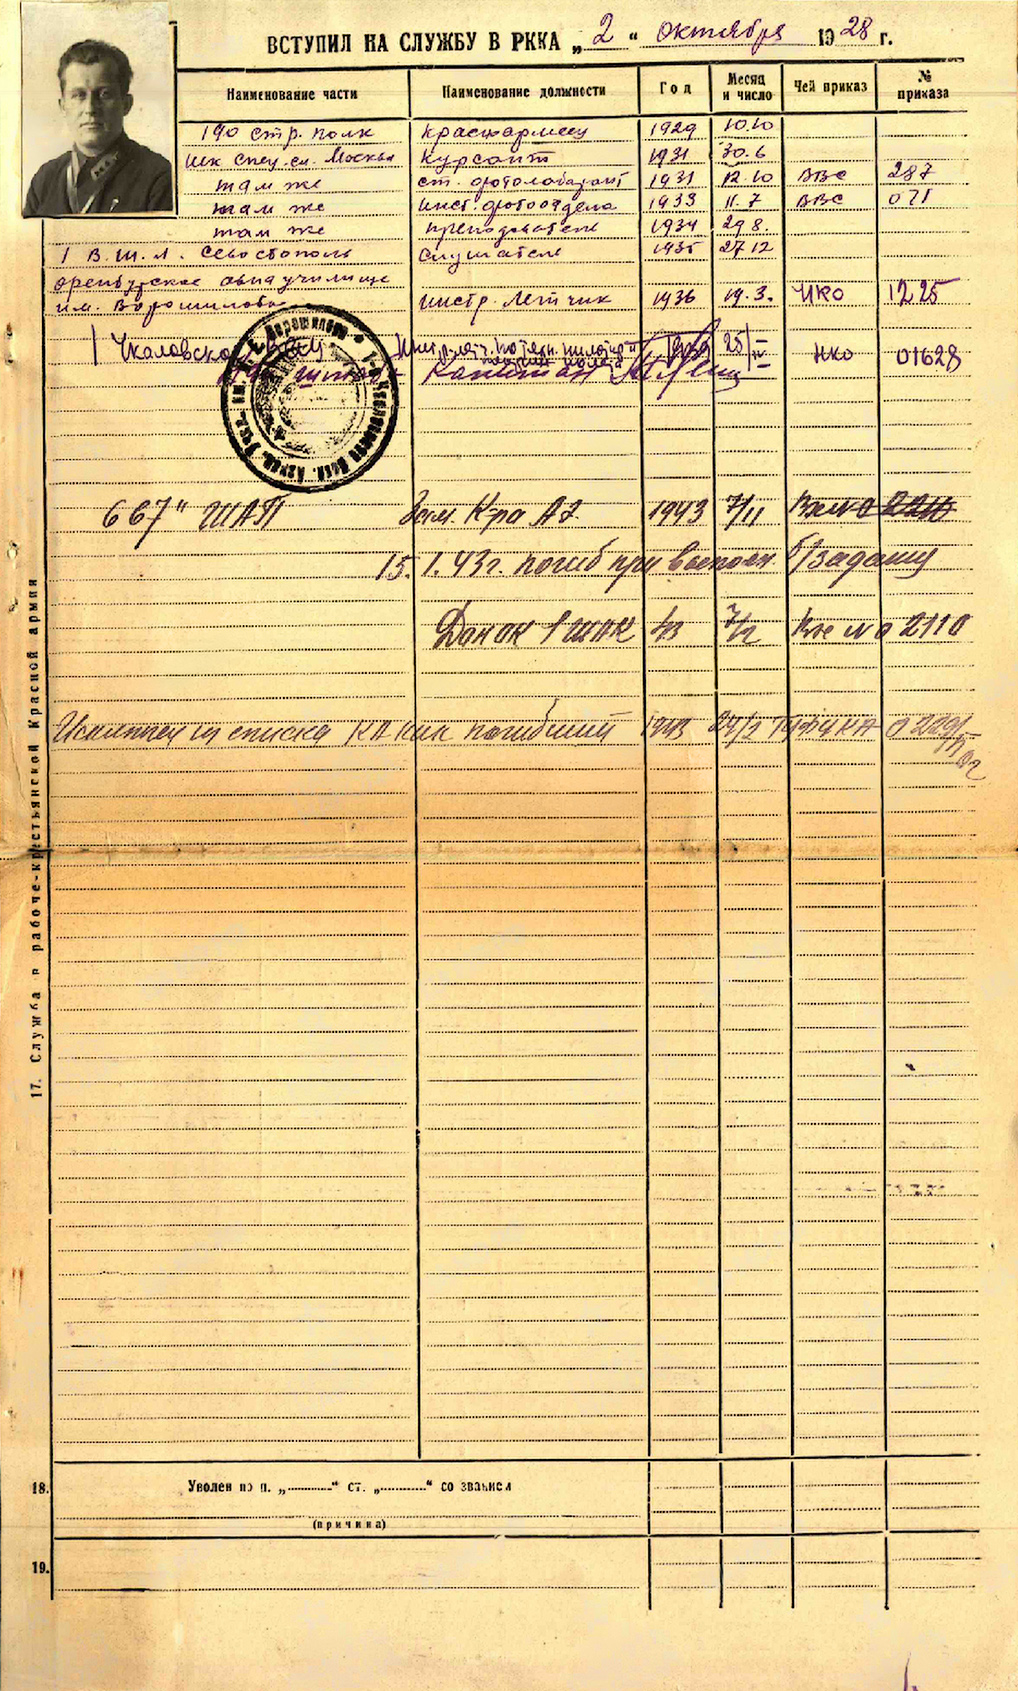 ВСТУПИЛ НА СЛУЖБУ В РККА „2“ октября 1928 г.
Наименование части Наименование должности Год Месяц и число Чей приказ № приказа
190 стр. полк красноармеец 1929 10.10
шк спец. сл. Москва курсант 1931 30.6
там же ст. фотолаборант 1931 12.10 ВВС 287
там же инст. фотоотдела 1933 11.7 ВВС 071
там же преподователь 1934 29.8.
1 В.Ш.Л. Севостополь слушатель 1935 27.12
оренбургское авиаучилище
им. Ворошилова инстр. летчик 1936 19.3. НКО 1225
Чкаловское 25/IV НКО 01628
капитан
667" ШАП Зам. К-ра АЭ. 1943 7/II
15.1.43г. погиб при выполн. б/задания
1 ШАК 43 7/2 2110
Исключен из списка КА как погибший 1943 24/2 ГУФУКА
17. Служба в рабоче-крестьянской Красной армии
18. Уволен по п. „ “ ст. „ “ со званием
(причина)
19.